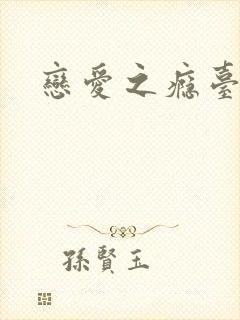 戀愛之癮臺
孫賢玉